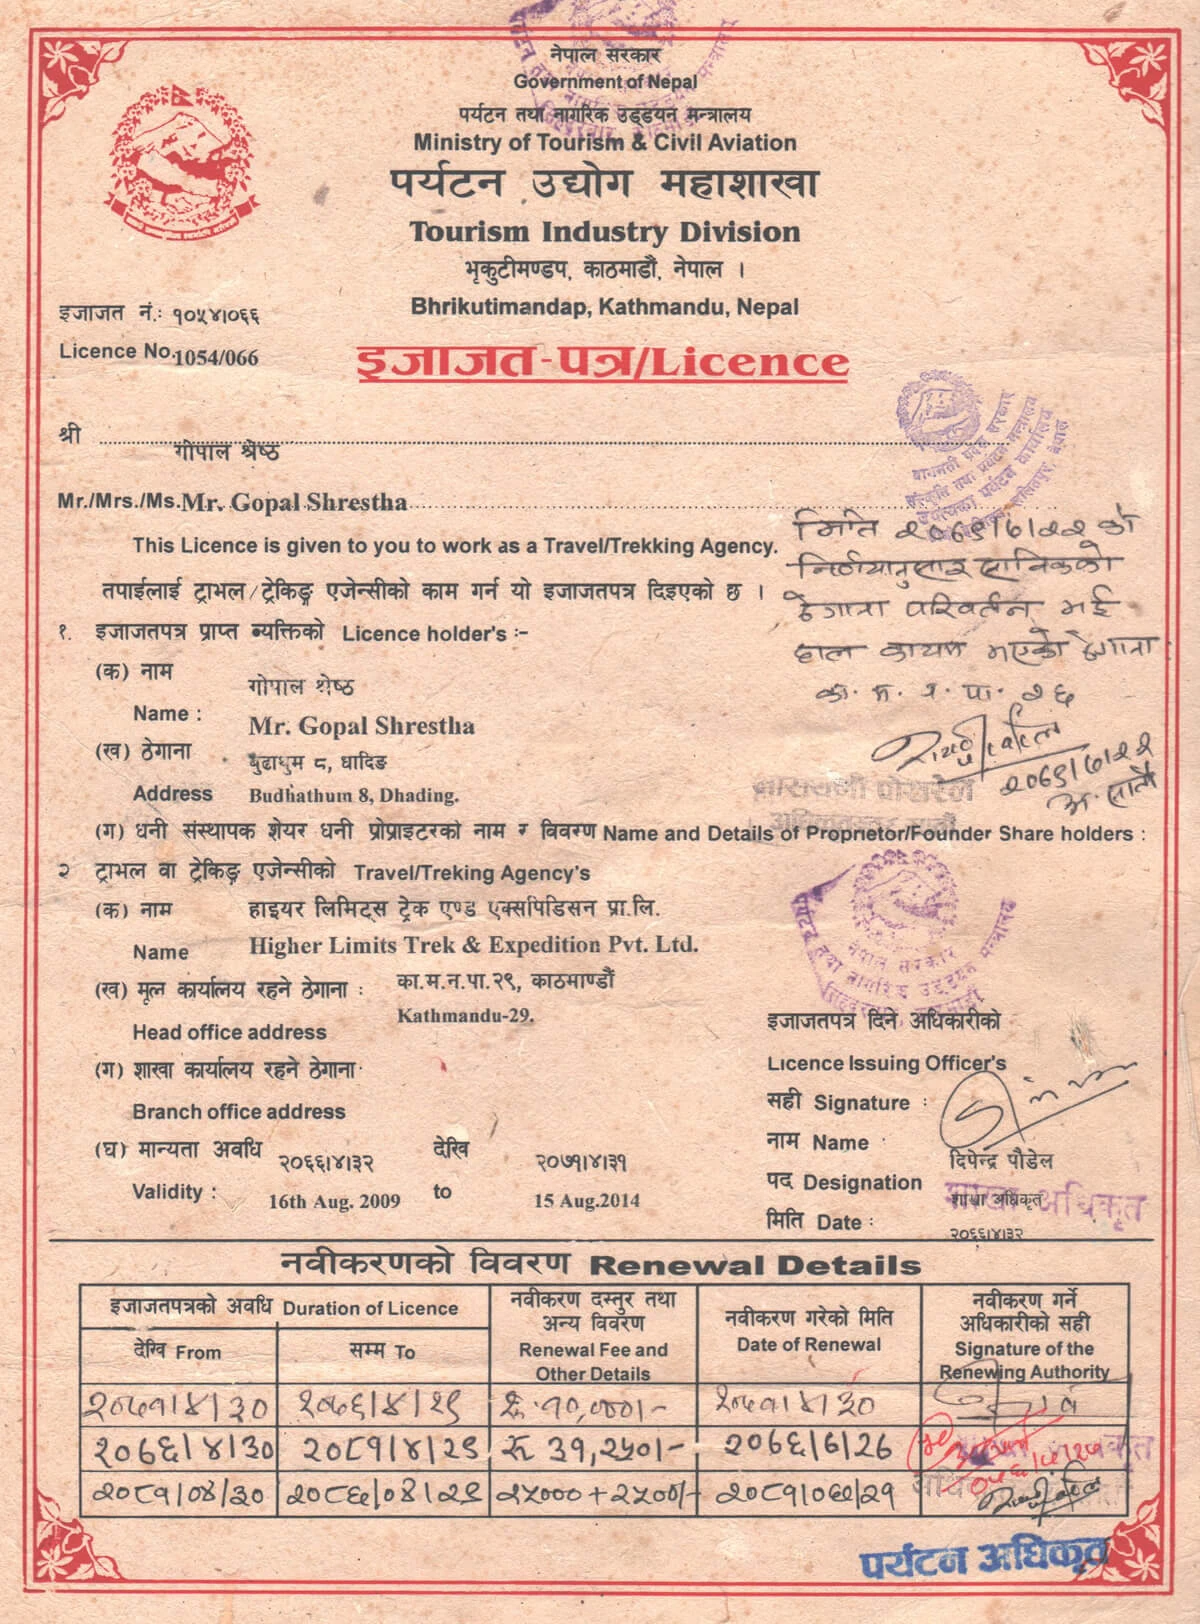 नेपाल सरकार
Government of Nepal
पर्यटन तथा नागरिक उड्डयन मन्त्रालय
Ministry of Tourism & Civil Aviation
पर्यटन उद्योग महाशाखा
Tourism Industry Division
भृकुटीमण्डप, काठमाडौं, नेपाल ।
Bhrikutimandap, Kathmandu, Nepal
इजाजत नं.: १०५४।०६६
Licence No. 1054/066
इजाजत-पत्र/Licence
श्री गोपाल श्रेष्ठ
Mr./Mrs./Ms. Mr. Gopal Shrestha
बागमती प्रदेश सरकार
This Licence is given to you to work as a Travel/Trekking Agency.
तपाईलाई ट्राभल/ट्रेकिङ्ग एजेन्सीको काम गर्न यो इजाजतपत्र दिइएको छ ।
ठेगाना परिवर्तन भई
हाल कायम भएको ठेगाना
का.म.न.पा. २६
१. इजाजतपत्र प्राप्त ब्यक्तिको Licence holder's :-
(क) नाम गोपाल श्रेष्ठ
Name : Mr. Gopal Shrestha
(ख) ठेगाना बुढाथुम ८, धादिङ
Address Budhathum 8, Dhading.
(ग) धनी संस्थापक शेयर धनी प्रोप्राइटरको नाम र विवरण Name and Details of Proprietor/Founder Share holders :
२ ट्राभल वा ट्रेकिङ्ग एजेन्सीको Travel/Treking Agency's
(क) नाम हाइयर लिमिट्स ट्रेक एण्ड एक्सपिडिसन प्रा.लि.
Name Higher Limits Trek & Expedition Pvt. Ltd.
(ख) मूल कार्यालय रहने ठेगाना : का.म.न.पा.२९, काठमाण्डौं
Head office address Kathmandu-29.
(ग) शाखा कार्यालय रहने ठेगाना
Branch office address
(घ) मान्यता अवधि २०६६।४।३२ देखि २०७१।४।३१
Validity : 16th Aug. 2009 to 15 Aug.2014
नेपाल सरकार
पर्यटन तथा नागरिक उड्डयन मन्त्रालय
इजाजतपत्र दिने अधिकारीको
Licence Issuing Officer's
सही Signature :
नाम Name : दिपेन्द्र पौडेल
पद Designation शाखा अधिकृत
शाखा अधिकृत
मिति Date : २०६६।४।३२
नवीकरणको विवरण Renewal Details
इजाजतपत्रको अवधि Duration of Licence
देखि From
सम्म To
नवीकरण दस्तुर तथा
अन्य विवरण
Renewal Fee and
Other Details
नवीकरण गरेको मिति
Date of Renewal
नवीकरण गर्ने
अधिकारीको सही
Signature of the
Renewing Authority
२०७१/४/३० २०७६/४/२९ रु.१०,०००/- २०७१/४/३०
२०७६/४/३० २०८१/४/२९ रू ३१,२५०/- २०७६/६/२६
२०८१/०४/३० २०८६/०४/२९ २५००० + २५००/-
पर्यटन अधिकृत